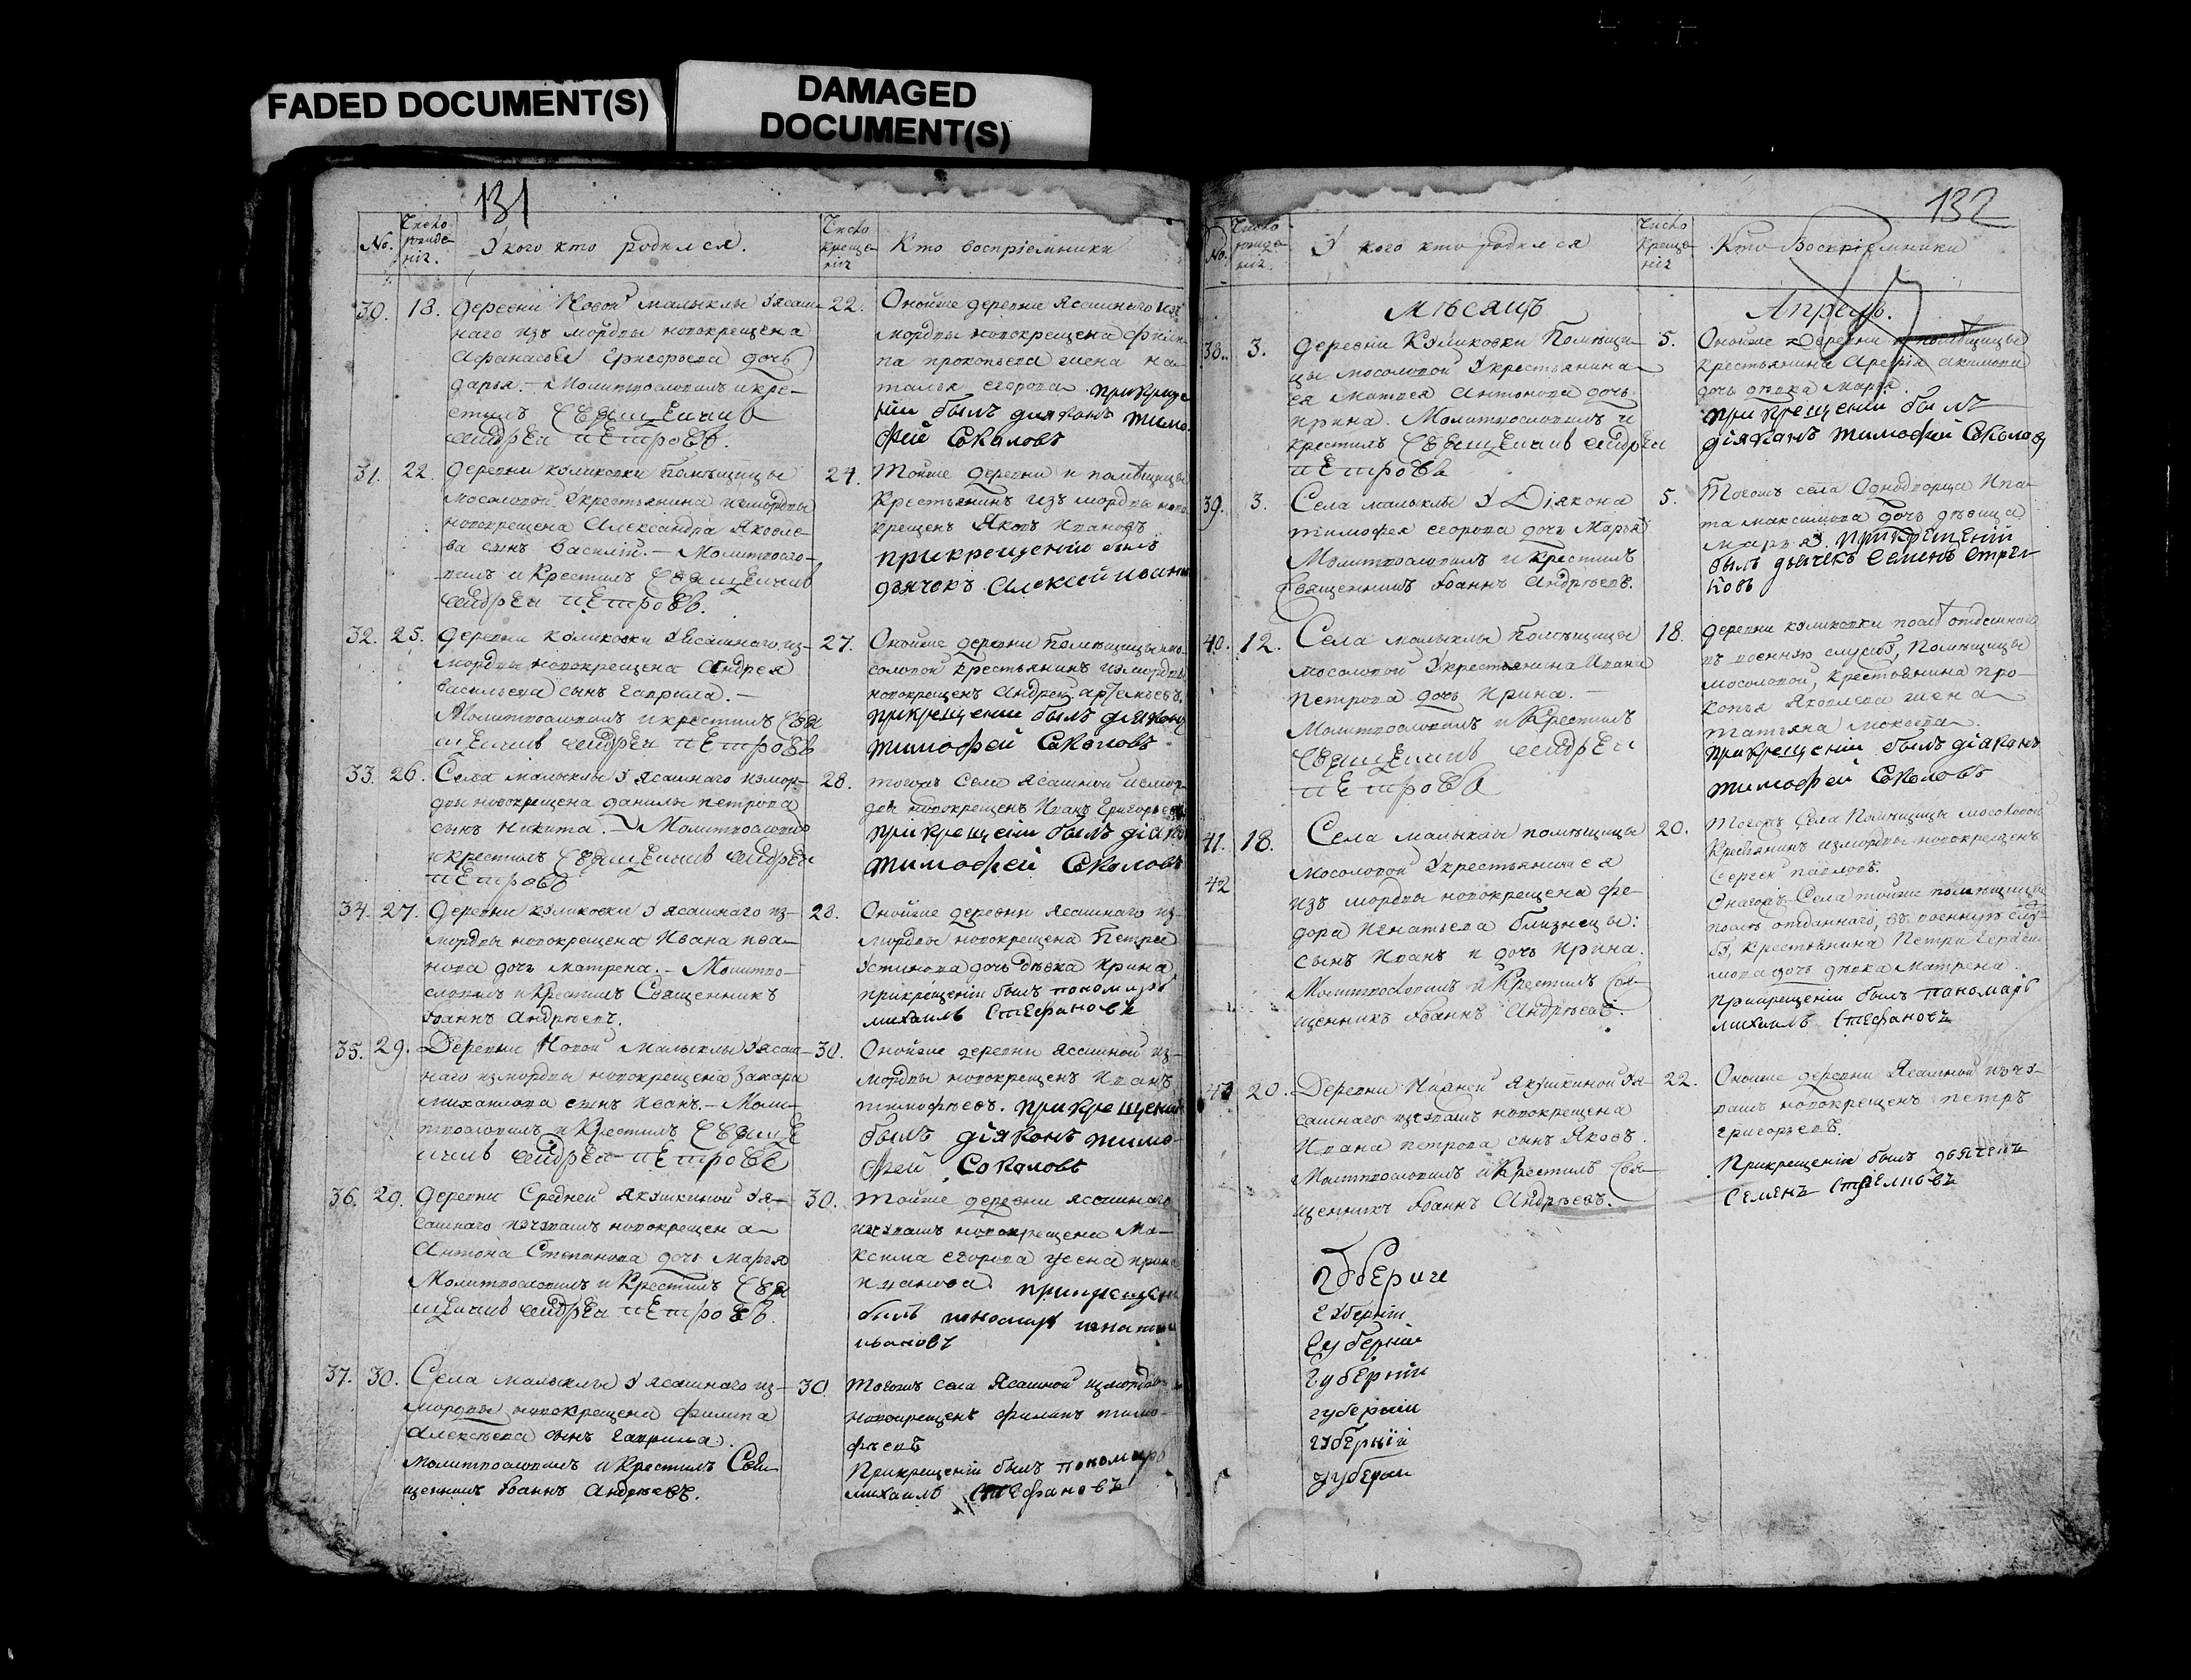 FADED DOCUMENT(S)
DAMAGED
DOCUMENT(S)
131
No.
Число
рожде-
нія.
У кого кто родился.
Число
креще-
нія
Кто воспріемники
30.
18.
деревни Новой малыклы Уясаш-
наго изъ мордвы новокрещена
Афанасья Григорьева дочь
дарья. – Молитвословилъ икре-
стилъ Священникъ
андрей петровъ.
22.
Оной же деревни Ясашнаго изъ
мордвы новокрещена Филип-
па прокопьева жена на-
талья егорова. прикреще
ніи былъ диаконъ тимо
фей Соколовъ
31.
22.
деревни куликовки помѣщицы
мосоловой Укрестьянина измордвы
новокрещена Александра Яковле-
ва сынъ Василій. – Молитвосло-
вилъ и Крестилъ Священникъ
андрей петровъ.
24.
Той же деревни и помѣщицы
Крестьянинъ изъ мордвы ново
крещенъ Яковъ Ивановъ
прикрещеніи былъ
дьячокъ Алексей ивановъ
32.
25.
деревни куликовки Уясашнаго из-
мордвы новокрещена Андрея
васильева сынъ гаврила. –
Молитвословилъ икрестилъ Свя
щенникъ андрей петровъ
27.
Оной же деревни помѣщицы мо-
соловой крестьянинъ измордвы
новокрещенъ Андрей артемьевъ.
прикрещеніи былъ диаконъ
тимофей Соколовъ
33.
26.
Села малыклы У Ясашнаго измор-
двы новокрещена данилы петрова
сынъ Никита. – Молитвословилъ
икрестилъ Священникъ андрей
петровъ
28.
тогожъ Села Ясашной измор
двы новокрещенъ Иванъ Григорьевъ
прикрещеніи былъ діаконъ
тимофей Соколовъ
34.
27.
Деревни куликовки У ясашнаго из-
мордвы новокрещена Ивана ива-
нова дочь матрена. – Молитво-
словилъ и Крестилъ Священникъ
Іоаннъ Андрѣевъ.
28.
Оной же деревни Ясашнаго из-
мордвы новокрещена Петра
Устинова дочь дѣвка Ирина
прикрещеніи былъ пономарь
михаилъ Стефановъ
35.
29.
Деревни Новой Малыклы Уясаш-
наго измордвы новокрещена Захара
михаилова сынъ Иванъ. – Моли-
твословилъ и Крестилъ Священ
никъ андрей петровъ
30.
Оной же деревни Ясашной из-
мордвы новокрещенъ Иванъ
тимофѣевъ. прикрещеніи
былъ діяконъ тимо-
фей Соколовъ
36.
29.
деревни Средней Якушкиной Уя-
сашнаго изчувашъ новокрещена
Антона Степанова дочь Марья
Молитвословилъ и Крестилъ Свя
щенникъ андрей петровъ.
30.
тойже деревни ясашнаго
изчувашъ новокрещена Ма-
ксима егорова жена ирина
иванова прикрещеніи
былъ пономарь игнатій
ивановъ
37.
30.
Села малыклы У ясашнаго из-
мордвы новокрещена филипа
Алексѣева сынъ Гаврила.
молитвословилъ и Крестилъ Свя-
щенникъ Іоаннъ Андрѣевъ.
30.
тогожъ села Ясашной измордвы
новокрещенъ филипъ тимо-
фѣевъ
Прикрещеніи былъ пономарь
михаилъ Стефановъ
132
No.
Число
рожде-
нія.
У кого кто родился
Число
креще-
нія
Кто Воспріемники
Мѣсяцъ
Апрель.
38.
3.
деревни Куликовки Помѣщи-
цы мосоловой Укрестьянина
ея Матвея Антонова дочь
ирина. Молитвословилъ и
крестилъ Священникъ андрей
петровъ
5.
Оной же деревни помѣщицы
крестьянина Арефія акимова
дочь дѣвка Марья.
При крещеніи былъ
діяконъ тимофей Соколов
39.
3.
Села малыклы У Діякона
тимофея егорова дочь Марья
Молитвословилъ и Крестилъ
Священникъ Іоаннъ Андрѣевъ.
5.
Тогожъ села Однодворца Ипа-
та максимова дочь дѣвица
марья. прикрещеніи
былъ дьячекъ Семенъ Стрел
ковъ
40.
12.
Села малыклы Помѣщицы
мосоловой Укрестьянина Ивана
Петрова дочь Ирина. –
Молитвословилъ и Крестилъ
Священникъ андрей
петровъ
18.
деревни куликовки отданнаго
въ военную службу, Помѣщицы
мосоловой, крестьянина про-
копья Яковлева жена
татьяна мокеева.
прикрещеніи былъ діаконъ
тимофей Соколовъ
41.
18.
Села малыклы помѣщицы
Мосоловой Укрестьянина ея
42
изъ мордвы новокрещена фе-
дора Игнатьева близнецы:
сынъ Иванъ и дочь Ирина.
Молитвословилъ и Крестилъ Свя-
щенникъ Іоаннъ Андрѣевъ.
20.
Тогожъ Села Помѣщицы мосоловой
Крестьянинъ измордвы новокрещенъ
Сергей павловъ.
Онагожъ Села тойже помѣщицы
отданнаго, въ военную служ-
бу, Крестьянина Петра Гераси-
мова дочь дѣвка Матрена.
Прикрещеніи былъ паномарь
михаилъ Стефановъ
43
20.
Деревни Нижней Якушкиной Уя-
сашнаго изчувашъ новокрещена
Ивана петрова сынъ Яковъ.
Молитвословилъ и Крестилъ Свя-
щенникъ Іоаннъ Андрѣевъ.
22.
Оной же деревни Ясашной изчу-
вашъ новокрещенъ петръ
григорьевъ.
Прикрещеніи былъ дьячекъ
Семенъ Стрелковъ
Губерніи
губерніи
Губерніи
Губерніи
губерніи
губерніи
губерніи